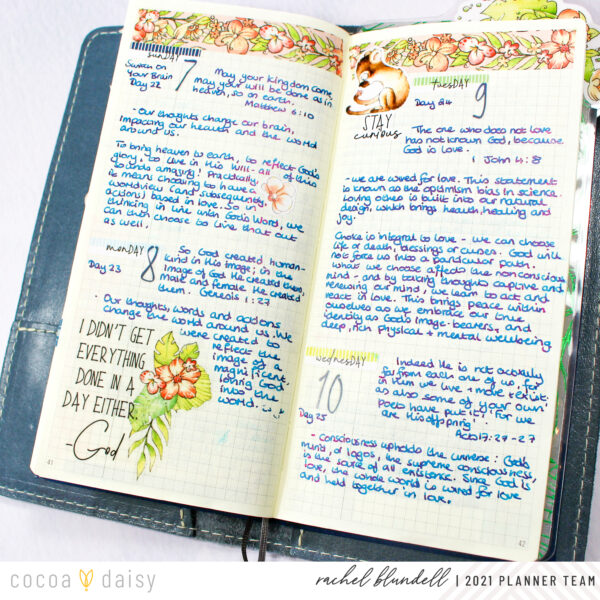 SUNDAY
7
Switch on
Your Brain
Day 22
May your kingdom come,
may your will be done as in
heaven, so on earth.
Matthew 6:10
- Our thoughts change our brain,
impacting our health and the world
around us.
To bring heaven to earth, to reflect God's
glory, to live in His will - all of this
sounds amazing! Practically,
it means choosing to have a
worldview (and subsequently,
actions) based in love. So in
thinking in line with God's Word, we
can then choose to live that out
as well.
MONDAY
8
Day 23
So God created human-
kind in his image; in the
image of God He created them,
male and female He created
them. Genesis 1:27
- Our thoughts, words and actions
change the world around us. We
were created to
reflect the
image of a
magnificent,
loving God
into the
world.
I DIDN'T GET
EVERYTHING
DONE IN A
DAY EITHER.
-God
41
STAY
curious
TUESDAY
9
Day 24
The one who does not love
has not known God, because
God is love.
1 John 4:8
- We are wired for love. This statement
is known as the optimism bias in science.
Loving others is built into our natural
design, which brings health, healing and
joy.
Choice is integral to love - we can choose
life or death, blessings or curses. God will
not force us into a particular path.
What we choose affects the nonconscious
mind - and by taking thoughts captive and
renewing our mind, we learn to act and
react in love. This brings peace within
ourselves as we embrace our true
identity as God's image-bearers, and
deep, rich physical + mental wellbeing
WEDNESDAY
10
Day 25
Indeed He is not actually
far from each one of us, for
in Him we live + move + exist:
as also some of your own
poets have put it: 'For we
are His offspring'
Acts 17:27-27
- Consciousness upholds the universe: God's
mind, or logos, the supreme consciousness,
is the source of all existence. Since God is
love, the whole world is wired for love
and held together in love.
42
cocoa daisy
rachel blundell | 2021 PLANNER TEAM